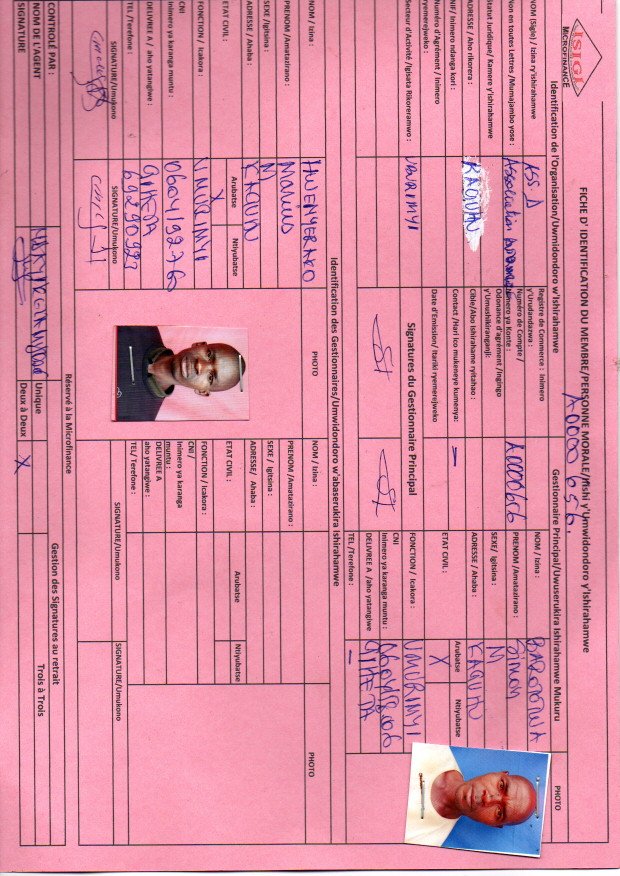 ISIGI
MICROFINANCE
FICHE D' IDENTIFICATION DU MEMBRE/PERSONNE MORALE/Ifishi y'Umwidondoro y'Ishirahamwe
A0000 656.
Identification de l'Organisation/Uwmidondoro w'Ishirahamwe
Gestionnaire Principal/Uwuserukira Ishirahamwe Mukuru
NOM (Sigle) / Izina ry'ishirahamwe
ASS. D
Non en toutes Lettres /Mumajambo yose :
Association
Statut Juridique/ Kamere y'ishirahamwe
ADRESSE / Aho rikorera :
KAGUHU
NIF/ Inimero ndanga kori :
Numéro d'Agrément / Inimero
ryemerejweko :
Secteur d'Activité /Igisata Rikoreramwo :
UBURIMYI
Registre de Commerce : Inimero
y'Urudandazwa :
Numéro de Compte /
Inimero ya Konte :
A0000656
Odonance d'agrément /Ingingo
y'Umushikiranganji:
Cible/Abo Ishirahame ryitaho :
Contact /Hari ico mukeneye kumenya:
Date d'Emission/ Itariki ryemerejweko
Signatures du Gestionnaire Principal
NOM / Izina :
PRENOM /Amatazirano :
Simon
SEXE/ Igitsina :
M
ADRESSE / Ahaba :
KAGUHU
ETAT CIVIL :
Arubatse
Ntiyubatse
X
FONCTION / Icakora :
UMURIMYI
CNI
Inimero ya karanga muntu :
DELIVREE A /aho yatangiwe
GIHETA
TEL /Terefone :
Identification des Gestionnaires/Umwidondoro w'abaserukira Ishirahamwe
NOM / Izina :
PHOTO
PRENOM /Amatazirano :
Marius
SEXE /Igitsina :
M
ADRESSE / Ahaba :
KAGUHU
ETAT CIVIL :
Arubatse
Ntiyubatse
X
FONCTION / Icakora :
UMURIMYI
CNI /
Inimero ya karanga muntu :
0604/192.76
DELIVREE A / aho yatangiwe :
GIHETA
TEL /Terefone :
69290923
SIGNATURE/Umukono
SIGNATURE/Umukono
NOM / Izina :
PHOTO
PRENOM /Amatazirano :
SEXE / Igitsina :
ADRESSE/ Ahaba :
ETAT CIVIL :
Arubatse
Ntiyubatse
FONCTION / Icakora :
CNI /
Inimero ya karanga
muntu :
DELIVREE A
aho yatangiwe :
TEL/ Terefone :
SIGNATURE/Umukono
SIGNATURE/Umukono
Réservé à la Microfinance
CONTROLÉ PAR :
Gestion des Signatures au retrait
NOM DE L'AGENT
Unique
Trois à Trois
SIGNATURE
Deux à Deux
X